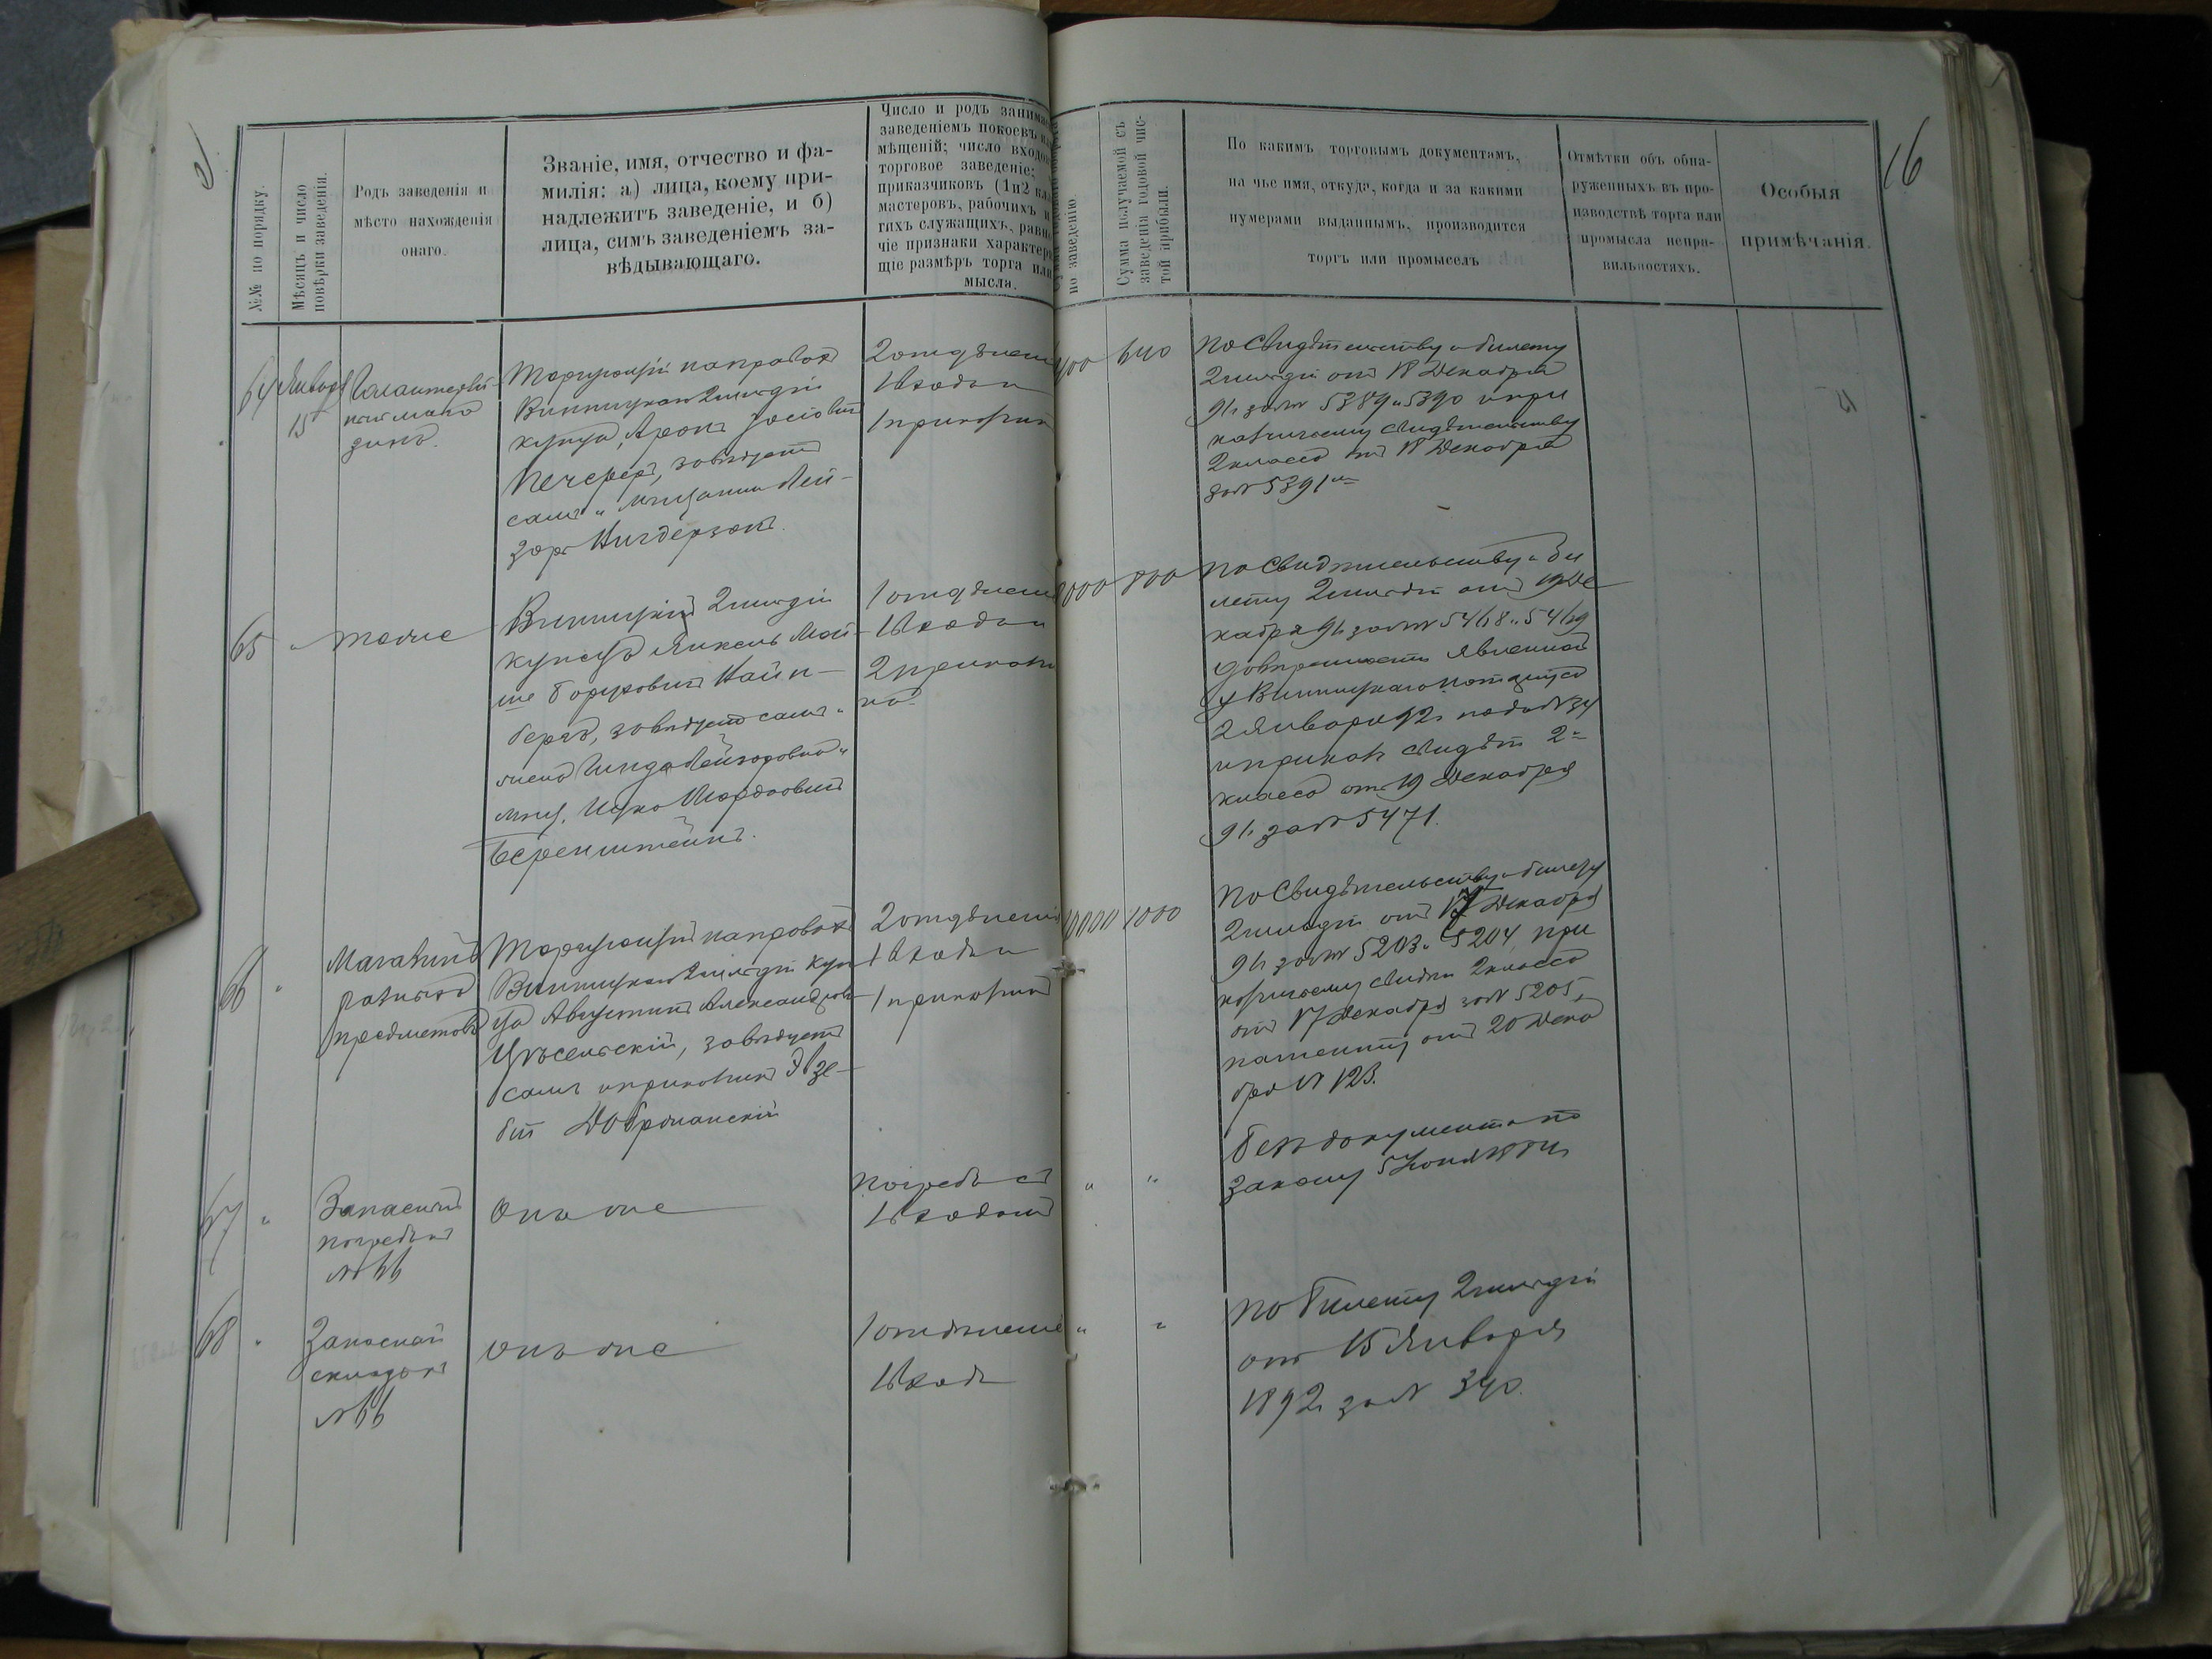 16
№№ по порядку.
Мѣсяцъ и число
повѣрки заведенія.
Родъ заведенія и
мѣсто нахожденія
онаго.
Званіе, имя, отчество и фа-
милія: а) лица, коему при-
надлежитъ заведеніе, и б)
лица, симъ заведеніемъ за-
вѣдывающаго.
Число и родъ занима
заведеніемъ покоевъ
мѣщеній; число входо
торговое заведеніе;
приказчиковъ (1 и 2 кла
мастеровъ, рабочихъ и
гихъ служащихъ, равно
чіе признаки характери
щіе размѣръ торга или
мысла.
по заведенію.
Сумма получаемой съ
заведенія годовой чис-
той прибыли.
По какимъ торговымъ документамъ,
на чье имя, откуда, когда и за какими
нумерами выданнымъ, производится
торгъ или промыселъ
Отмѣтки объ обна-
руженныхъ въ про-
изводствѣ торга или
промысла непра-
вильностяхъ.
Особыя
примѣчанія.
64
Января
15
Галантерей-
ный мага
зинъ.
Торгующій на правахъ
Винницкаго 2 гильдіи
купца, Аронъ Іосіовичъ
Печереръ, завѣдуетъ
самъ и мѣщанинъ Лей-
зоръ
2 отдѣленія
1 входъ и
1 приказчикъ
640
По Свидѣтельству и билету
2 гильдіи отъ 18 Декабря
91 г. за №№ 5389 и 5390 и при
казчичьему свидѣтельству
2 класса отъ 18 Декабря
за № 5391 м
65 "
тоже
Винницкій 2 гильдіи
купецъ Янкель Мой-
ше Боруховичъ Вайн-
берг, завѣдуетъ самъ и
жена Гинда Лейзоровна и
мѣщ. Ицко Мордковичъ
Беренштейнъ.
1 отдѣленіе
1 входъ и
2 приказчи
ка
8000
800
По Свидѣтельству и би
лету 2 гильдіи отъ 19 Де
кабря 91 г. за №№ 5468 и 5469
довѣренность явленной
у Винницкаго нотаріуса
2 Января 92 г. подъ № 34
и приказ. свидѣт. 2 го
класса отъ 19 Декабря
91 г. за № 5471.
66 "
Магазинъ
разныхъ
предметовъ
Торгующій на правахъ
Винницкаго 2 гильдіи куп
ца Августинъ Александров
завѣдуетъ
самъ и приказчикъ
Добрянскій
2 отдѣленія
1 входъ и
1 приказчикъ
10000
1000
По Свидѣтельству и билету
2 гильдіи отъ 17 Декабря
91 г. за №№ 5203 и 5204, при
казчичьему свидѣт. 2 класса
отъ 17 Декабря за № 5205,
патенту отъ 20 Дека
бря № 123.
67 "
Запасный
погребъ къ
№ 66
Онъ же
погребъ съ
1 входомъ
" "
Безъ документа по
закону 5 Іюня 1884 г.
68 "
Запасной
складъ къ
№ 66
Онъ же
1 отдѣленіе
1 входъ
" "
По билету 2 гильдіи
отъ 15 Января
1892 г. за № 340.